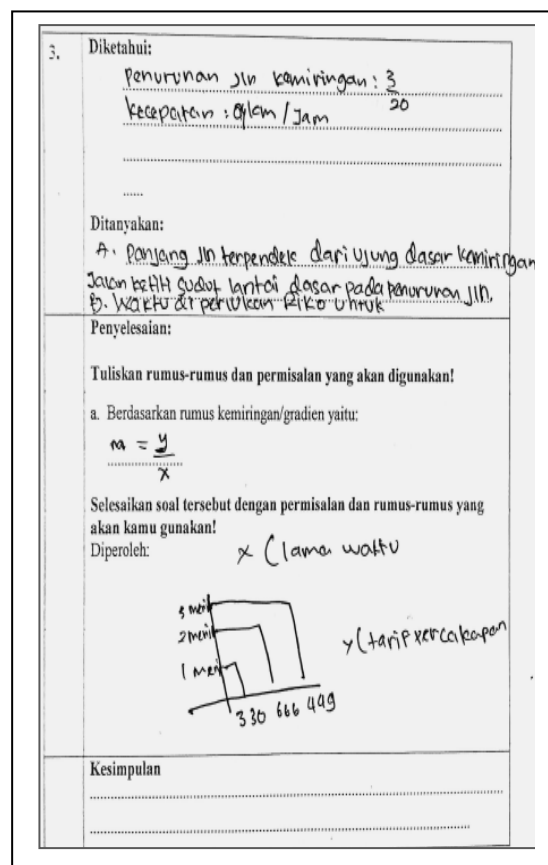 3. Diketahui:
Penurunan Jln kemiringan : 3/20
kecepatan : km / Jam
......
Ditanyakan:
A. Panjang Jln terpendek dari ujung dasar kemiringan
Jalan sudut lantai dasar pada penurunan Jln.
B. Waktu di perlukan Riko untuk
Penyelesaian:
Tuliskan rumus-rumus dan permisalan yang akan digunakan!
a. Berdasarkan rumus kemiringan/gradien yaitu:
m = y/x
Selesaikan soal tersebut dengan permisalan dan rumus-rumus yang
akan kamu gunakan!
Diperoleh:
x (lama waktu
3 menit
2 menit
1 menit
y (tarif percakapan
330 666 449
Kesimpulan